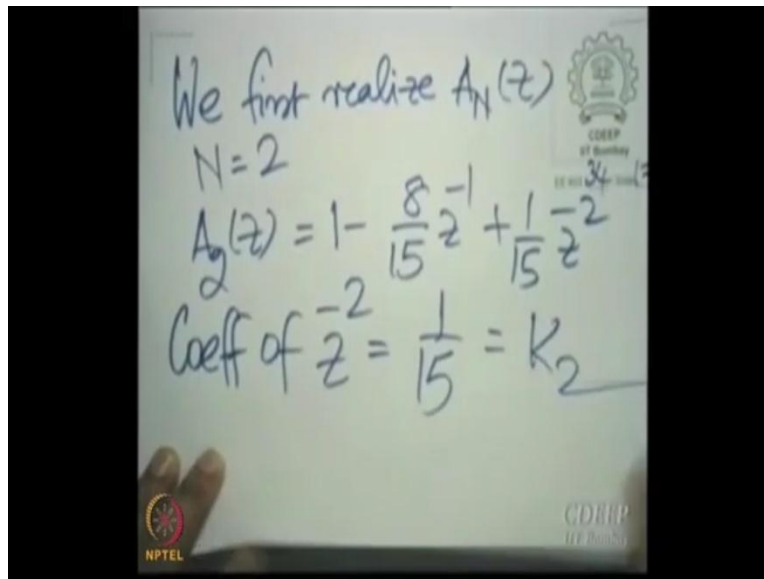 We first realize A_N(z)
CDEEP
IIT Bombay
N = 2
34
A_2(z) = 1 - 8/15 z^-1 + 1/15 z^-2
Coeff of z^-2 = 1/15 = K_2
NPTEL
CDEEP
IIT Bombay